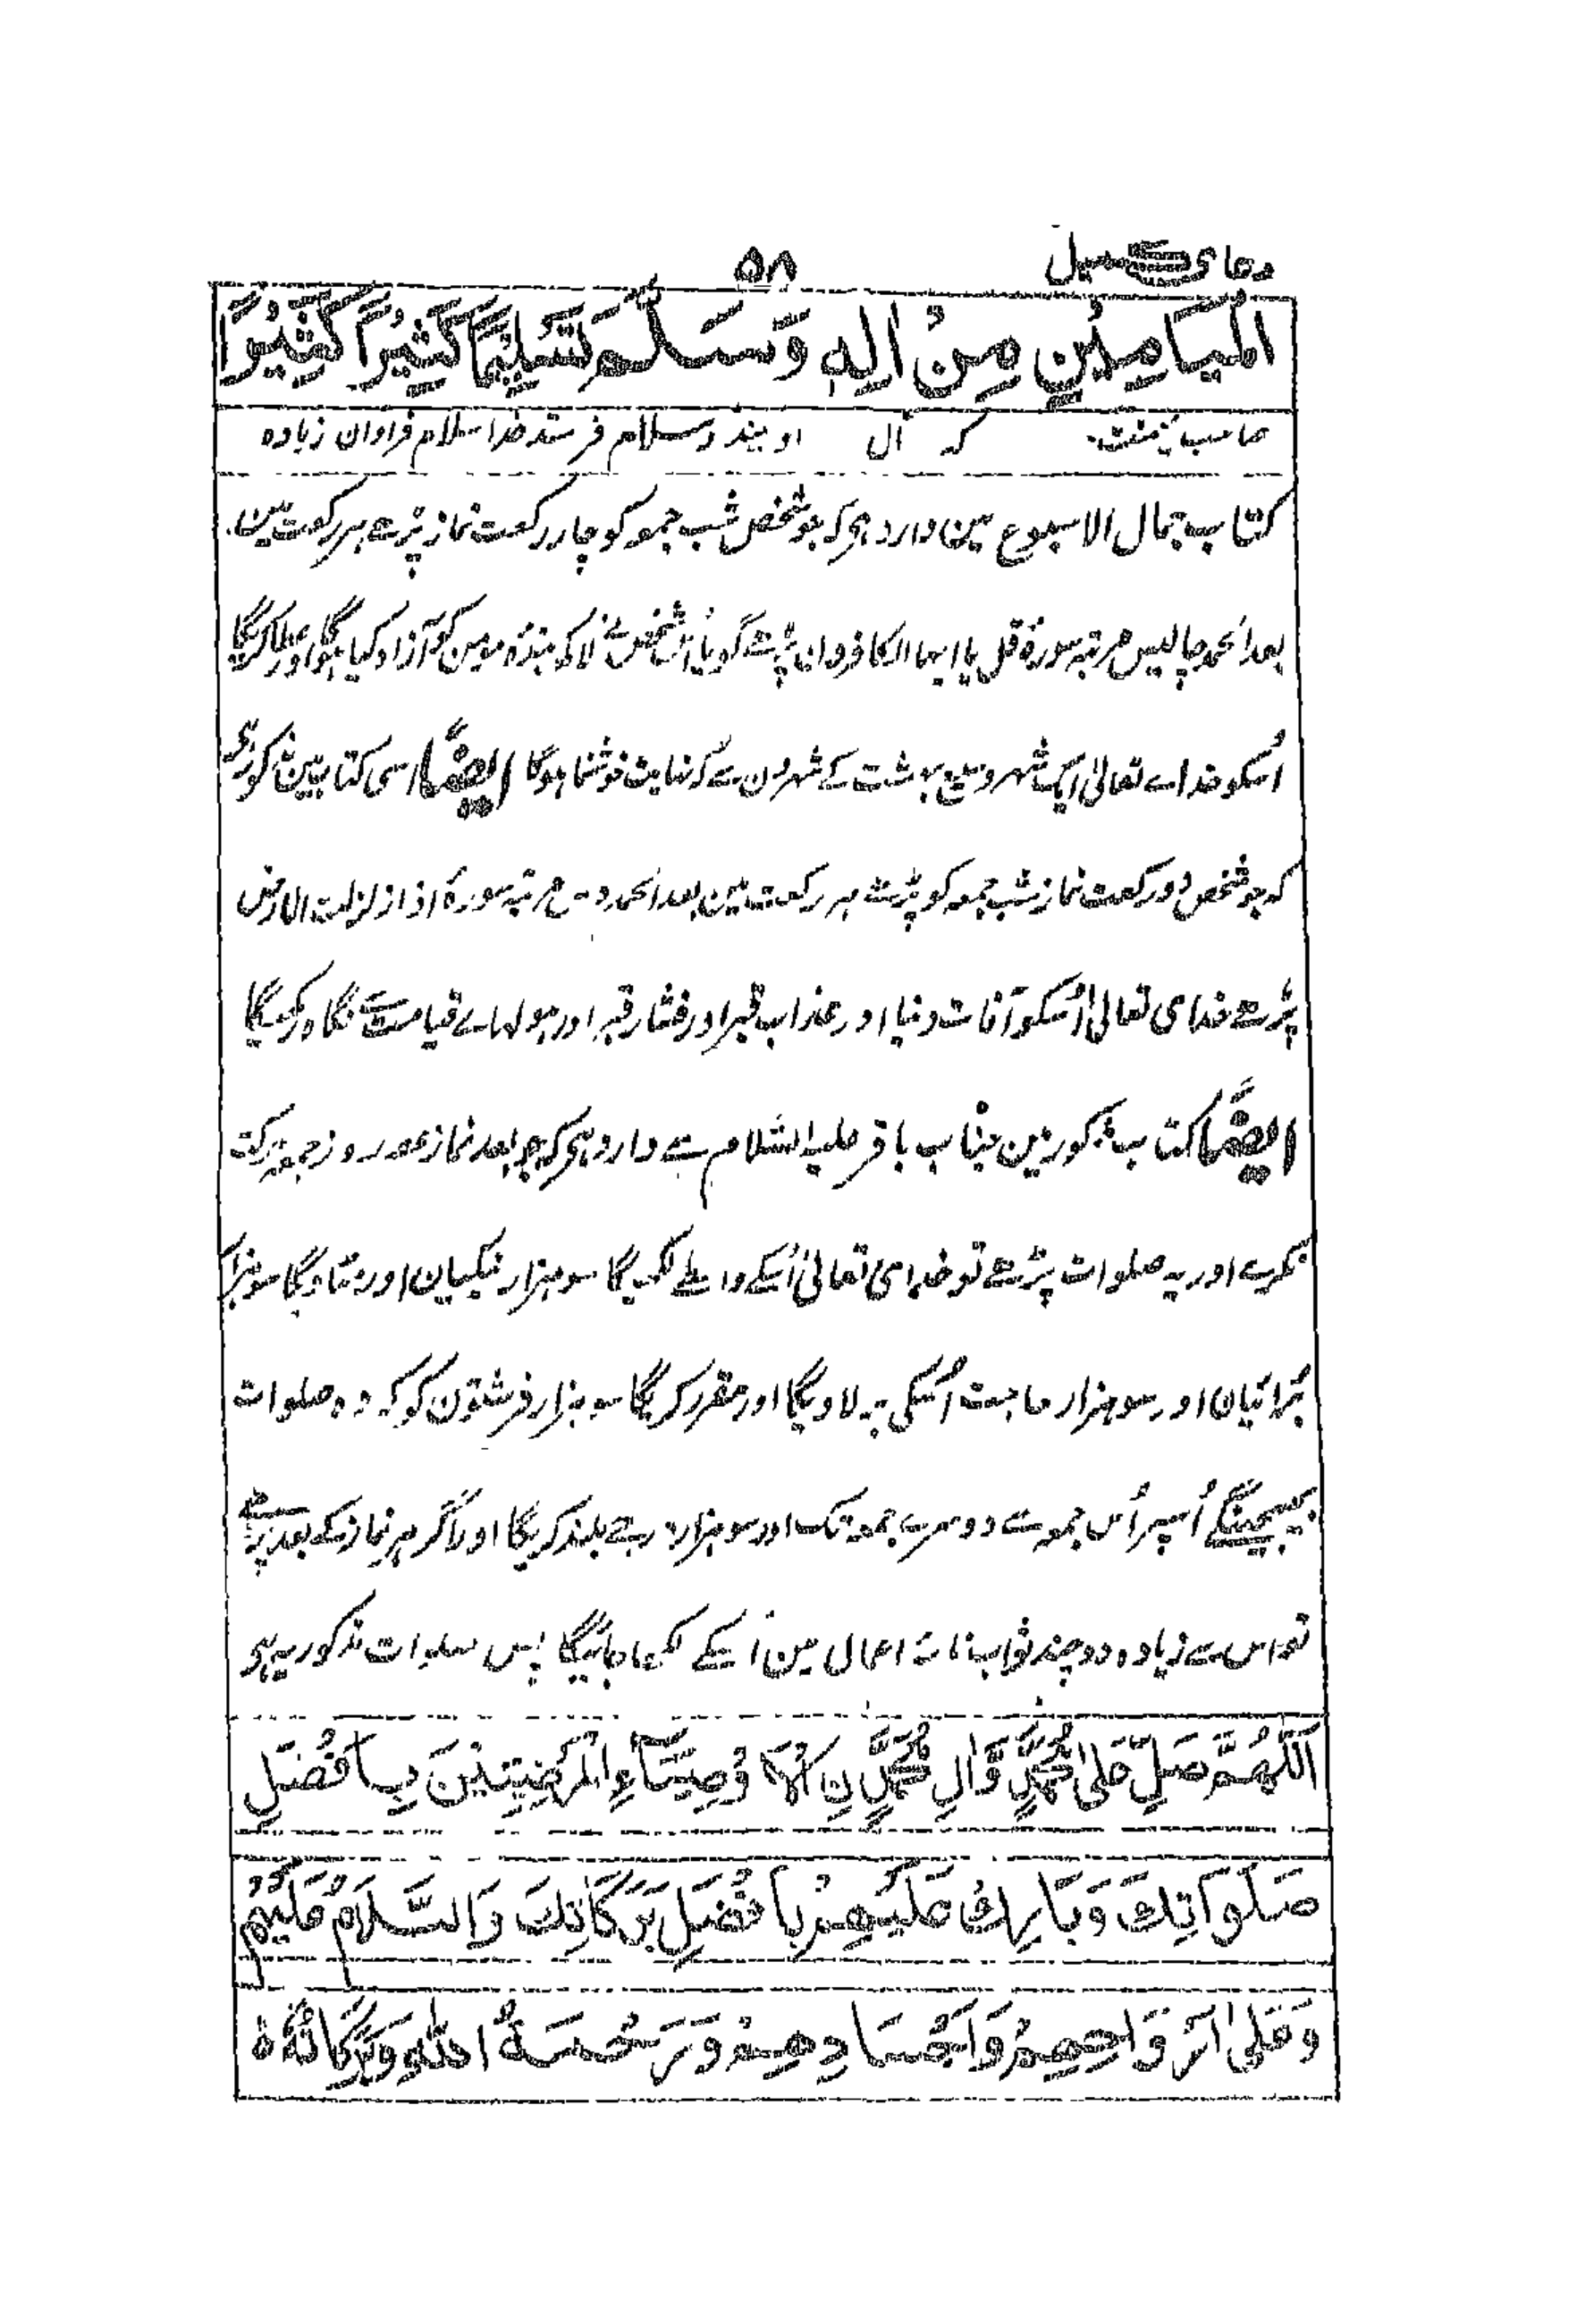 دعای کمیل
۵۸
الْمَيَامِيْنِ مِنْ اٰلِهٖ وَسَلَّمَ تَسْلِيْمًا كَثِيْرًا كَثِيْرًا
صاحب یمنت کہ آل اویند وسلام فرستد خدا سلام فراوان زیادہ
کتاب جمال الاسبوع مین وارد ہی کہ جو شخص شب جمعہ کو چار رکعت نماز پڑھے ہر رکعت مین
بعد الحمد چالیس مرتبہ سورۂ قل یا ایہا الکافرون پڑھے گویا اُس شخص نے لاکھ بندۂ مومن کو آزاد کیا ہوگا اور عطا کریگا
اُسکو خداے تعالیٰ ایک شہر وسیع بہشت کے شہرون سے کہ نہایت خوشنما ہوگا ایضًا اسی کتاب مین مذکور ہی
کہ جو شخص دو رکعت نماز شب جمعہ کو پڑھے ہر رکعت مین بعد الحمد مرتبہ سورۂ اذا زلزلت الارض
پڑھے خدای تعالیٰ اُسکو آفات دنیا اور عذاب قبر اور فشار قبر اور ہولہاے قیامت سے نگاہ رکھیگا
ایضًا کتاب مذکور مین جناب باقر علیہ السّلام سے وارد ہی کہ جو بعد نماز عصر روز جمعہ حرکت
نکرے اور یہ صلوات پڑھے تو خدای تعالیٰ اُسکے واسطے لکھیگا سو ہزار نیکیان اور مٹاویگا سو ہزار
بُرائیان اور سو ہزار حاجت اُسکی بر لاویگا اور مقرر کریگا سو ہزار فرشتون کو کہ وہ صلوات
بھیجینگے اُسپر اُس جمعہ سے دوسرے جمعہ تک اور سو ہزار درجے بلند کریگا اور اگر ہر نماز کے بعد پڑھے
تو اس سے زیادہ دو چند ثواب نامۂ اعمال مین اُسکے لکھا جائیگا پس صلوات مذکور یہ ہی
اَللّٰهُمَّ صَلِّ عَلٰى مُحَمَّدٍ وَّاٰلِ مُحَمَّدِنِ الْاَوْصِيَآءِ الْمَرْضِيِّيْنَ بِاَفْضَلِ
صَلَوَاتِكَ وَبَارِكْ عَلَيْهِمْ بِاَفْضَلِ بَرَكَاتِكَ وَالسَّلَامُ عَلَيْهِمْ
وَعَلٰى اَرْوَاحِهِمْ وَاَجْسَادِهِمْ وَرَحْمَةُ اللّٰهِ وَبَرَكَاتُهٗ